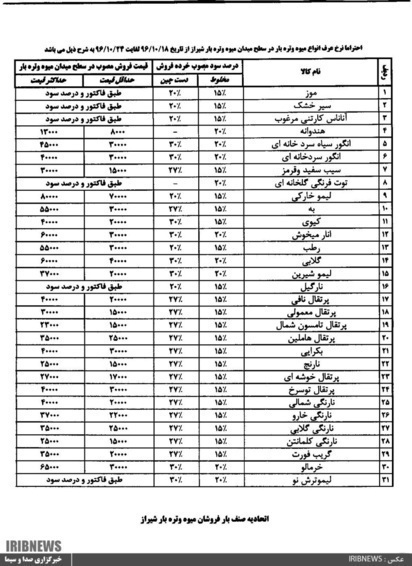 احتراما نرخ صرف انواع میوه وتره بار در سطح میدان میوه وتره بار شیراز از تاریخ ۹۶/۱۰/۱۸ لغایت ۹۶/۱۰/۲۴ به شرح ذیل می باشد
ردیف نام کالا درصد سود مصوب خرده فروش قیمت فروش مصوب در سطح میدان میوه وتره بار
مخلوط دست چین حداقل قیمت حداکثر قیمت
۱ موز ۱۵٪ ۲۰٪ طبق فاکتور و درصد سود
۲ سیر خشک ۱۵٪ ۲۰٪ طبق فاکتور و درصد سود
۳ آناناس کارتنی مرغوب ۱۵٪ ۲۰٪ طبق فاکتور و درصد سود
۴ هندوانه ۱۵٪ – ۸۰۰۰ ۱۳۰۰۰
۵ انگور سیاه سرد خانه ای ۱۵٪ ۳۰٪ ۳۰۰۰۰ ۴۵۰۰۰
۶ انگور سردخانه ای ۱۵٪ ۳۰٪ ۳۰۰۰۰ ۴۰۰۰۰
۷ سیب سفید وقرمز ۱۵٪ ۲۷٪ ۱۵۰۰۰ ۳۰۰۰۰
۸ توت فرنگی گلخانه ای ۲۰٪ – طبق فاکتور و درصد سود
۹ لیمو خارکی ۱۵٪ ۲۰٪ ۷۰۰۰۰ ۸۰۰۰۰
۱۰ به ۱۵٪ ۲۷٪ ۳۰۰۰۰ ۵۵۰۰۰
۱۱ کیوی ۱۵٪ ۳۰٪ ۲۰۰۰۰ ۴۰۰۰۰
۱۲ انار میخوش ۱۵٪ ۳۰٪ ۳۰۰۰۰ ۶۰۰۰۰
۱۳ رطب ۱۵٪ ۲۰٪ ۳۰۰۰۰ ۵۵۰۰۰
۱۴ گلابی ۲۰٪ ۳۰٪ ۴۰۰۰۰ ۶۰۰۰۰
۱۵ لیمو شیرین ۱۵٪ ۳۰٪ ۲۰۰۰۰ ۳۷۰۰۰
۱۶ نارگیل ۱۵٪ ۲۰٪ طبق فاکتور و درصد سود
۱۷ پرتقال نافی ۱۵٪ ۲۷٪ ۲۰۰۰۰ ۴۰۰۰۰
۱۸ پرتقال معمولی ۱۵٪ ۲۷٪ ۱۵۰۰۰ ۳۰۰۰۰
۱۹ پرتقال تامسون شمال ۱۵٪ ۲۷٪ ۱۵۰۰۰ ۲۳۰۰۰
۲۰ پرتقال هاملین ۱۵٪ ۲۷٪ ۲۵۰۰۰ ۳۵۰۰۰
۲۱ بکرایی ۱۵٪ ۲۷٪ ۳۰۰۰۰ ۴۰۰۰۰
۲۲ نارنج ۱۵٪ ۲۷٪ ۱۵۰۰۰ ۲۵۰۰۰
۲۳ پرتقال خوشه ای ۱۵٪ ۲۷٪ ۱۷۰۰۰ ۲۷۰۰۰
۲۴ پرتقال توسرخ ۱۵٪ ۲۷٪ ۳۰۰۰۰ ۴۰۰۰۰
۲۵ نارنگی شمالی ۱۵٪ ۲۷٪ ۲۰۰۰۰ ۴۰۰۰۰
۲۶ نارنگی خارو ۱۵٪ ۲۷٪ ۲۲۰۰۰ ۳۷۰۰۰
۲۷ نارنگی گلابی ۱۵٪ ۲۷٪ ۲۵۰۰۰ ۳۵۰۰۰
۲۸ نارنگی کلمانتن ۱۵٪ ۲۷٪ ۱۵۰۰۰ ۲۵۰۰۰
۲۹ گریب فورت ۱۵٪ ۲۷٪ ۲۰۰۰۰ ۳۵۰۰۰
۳۰ خرمالو ۲۰٪ ۳۰٪ ۳۰۰۰۰ ۶۵۰۰۰
۳۱ لیموترش نو ۲۰٪ ۳۰٪ طبق فاکتور و درصد سود
اتحادیه صنف بار فروشان میوه وتره بار شیراز
IRIBNEWS
خبرگزاری صدا و سیما
عکس : IRIBNEWS